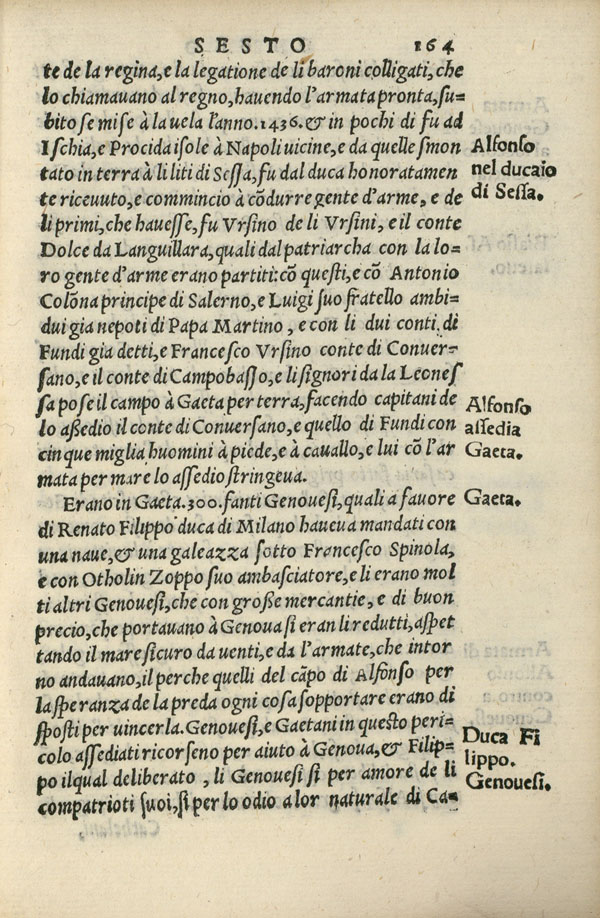 SESTO 164
te de la regina, e la legatione de li baroni colligati, che
lo chiamauano al regno, hauendo l'armata pronta, su-
bito se mise à la uela l'anno. 1436. & in pochi di fu ad
Ischia, e Procida isole à Napoli uicine, e da quelle smon
tato in terra à li liti di Sessa, fu dal duca honoratamen
te riceuuto, e commincio à cõdurre gente d'arme, e de
li primi, che hauesse, fu Vrsino de li Vrsini, e il conte
Dolce da Languillara, quali dal patriarcha con la lo-
ro gente d'arme erano partiti: cõ questi, e cõ Antonio
Colõna principe di Salerno, e Luigi suo fratello ambi-
dui gia nepoti di Papa Martino, e con li dui conti di
Fundi gia detti, e Francesco Vrsino conte di Conuer-
sano, e il conte di Campobasso, e li signori da la Leoness
sa pose il campo à Gaeta per terra, facendo capitani de
lo aßedio il conte di Conuersano, e quello di Fundi con
cinque miglia huomini à piede, e à cauallo, e lui cõ l'ar
mata per mare lo assedio stringeua.
Erano in Gaeta. 300. fanti Genouesi, quali a fauore
di Renato Filippo duca di Milano haueua mandati con
una naue, & una galeazza sotto Francesco Spinola,
e con Otholin Zoppo suo ambasciatore, e li erano mol
ti altri Genouesi, che con große mercantie, e di buon
precio, che portauano à Genoua si eran li redutti, aspet
tando il mare sicuro da uenti, e da l'armate, che intor
no andauano, il perche quelli del cãpo di Alfonso per
la speranza de la preda ogni cosa sopportare erano di
sposti per uincerla. Genouesi, e Gaetani in questo peri-
colo assediati ricorseno per aiuto à Genoua, & Filip-
po ilqual deliberato, li Genouesi si per amore de li
compatrioti suoi, si per lo odio a lor naturale di Ca-
Alfonso
nel ducato
di Sessa.
Alfonso
assedia
Gaeta.
Gaeta.
Duca Fi
lippo.
Genouesi.